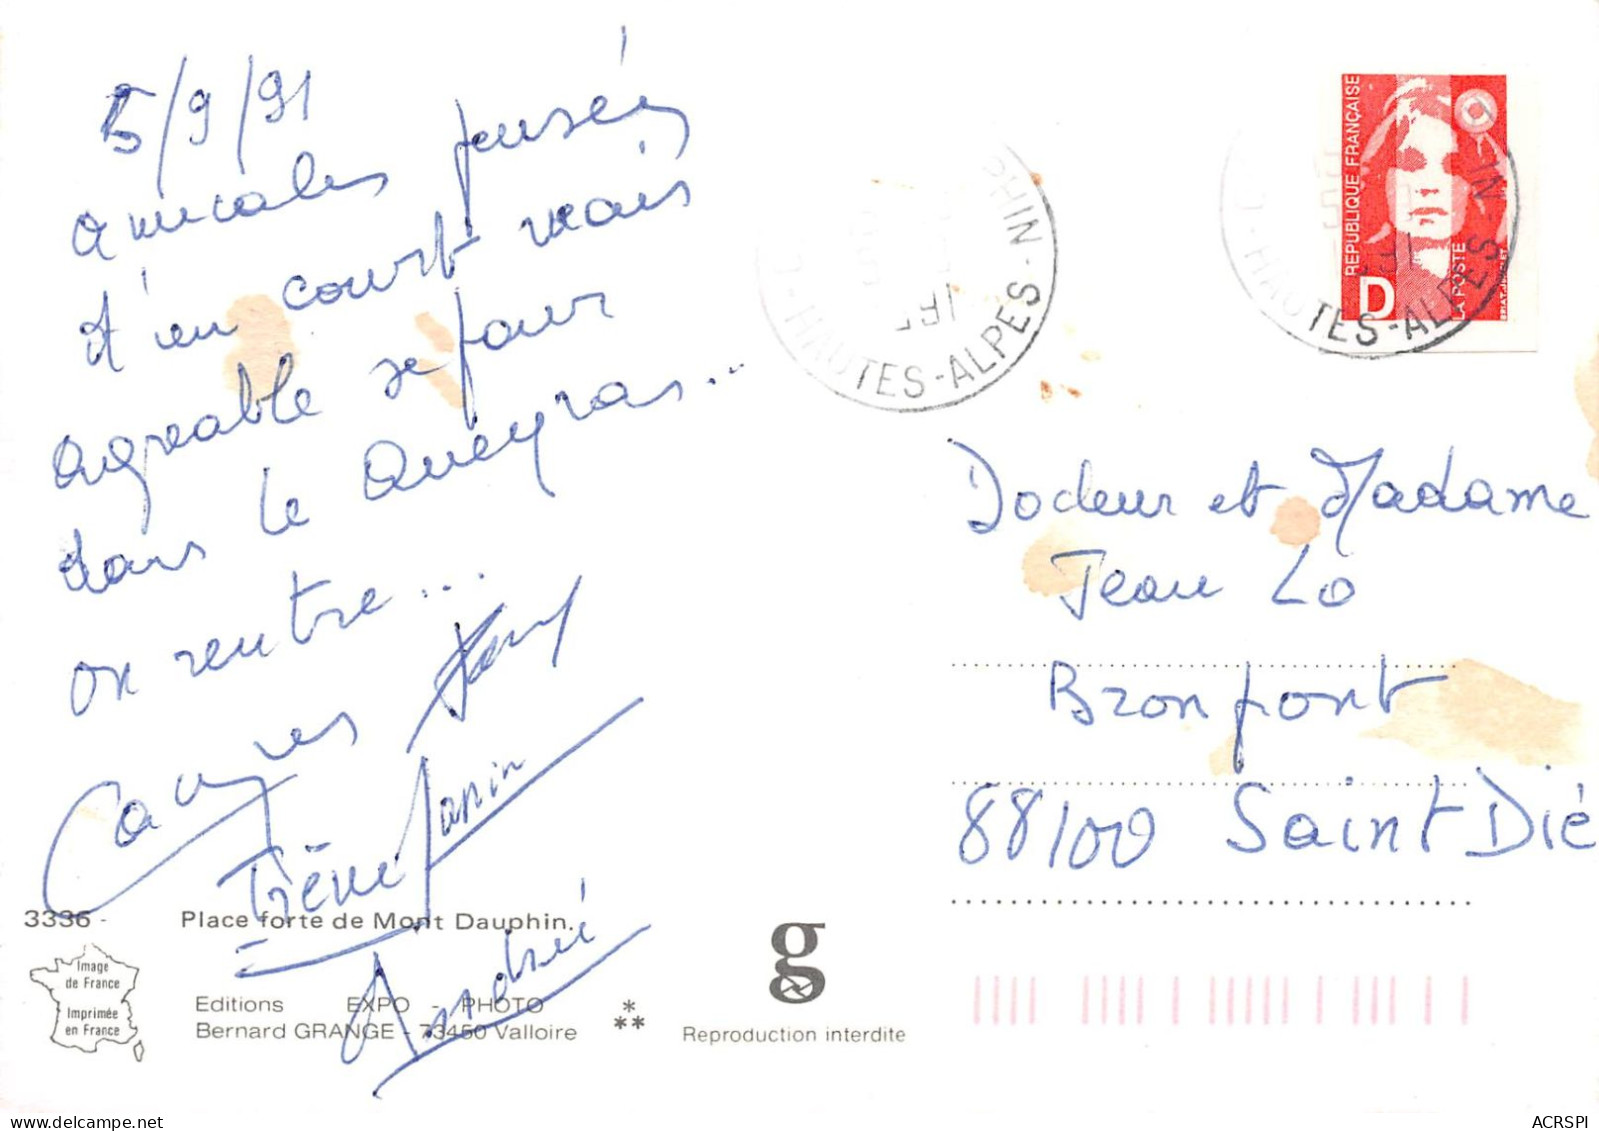 5/9/91
Amicales pensées
d'un court mais
agréable séjour
dans le Queyras...
on rentre...
Janin
Andrée
3336 - Place forte de Mont Dauphin.
Image
de France
Imprimée
en France
Editions EXPO - PHOTO
Bernard GRANGE - 73450 Valloire
*
**
g
Reproduction interdite
PHIN
HAUTES-ALPES
REPUBLIQUE FRANÇAISE
D
LA POSTE
HAUTES-ALPES
Docteur et Madame
Jean Lo
Bronfont
88100 Saint Dié
ACRSPI